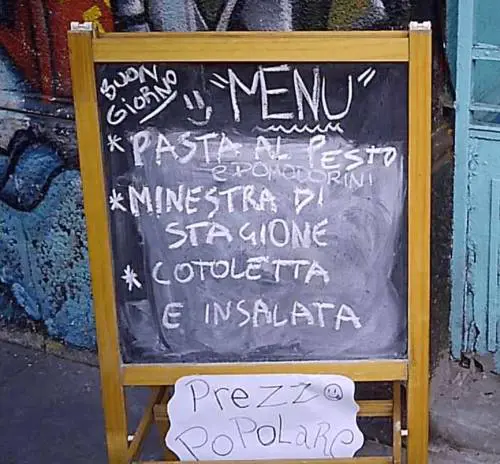 BUON
GIORNO
"MENU"
* PASTA AL PESTO
E POMODORINI
* MINESTRA DI
STAGIONE
* COTOLETTA
E INSALATA
Prezzo
POPOLARE